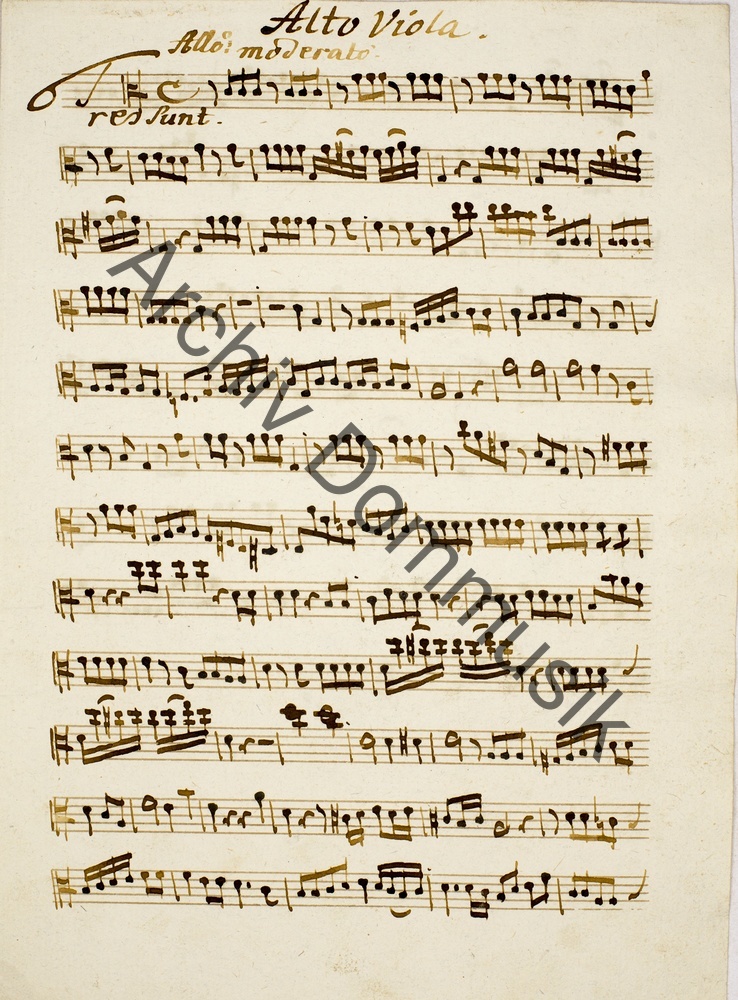 Alto Viola.
Allo: moderato.
Tres sunt.
Archiv Dommusik